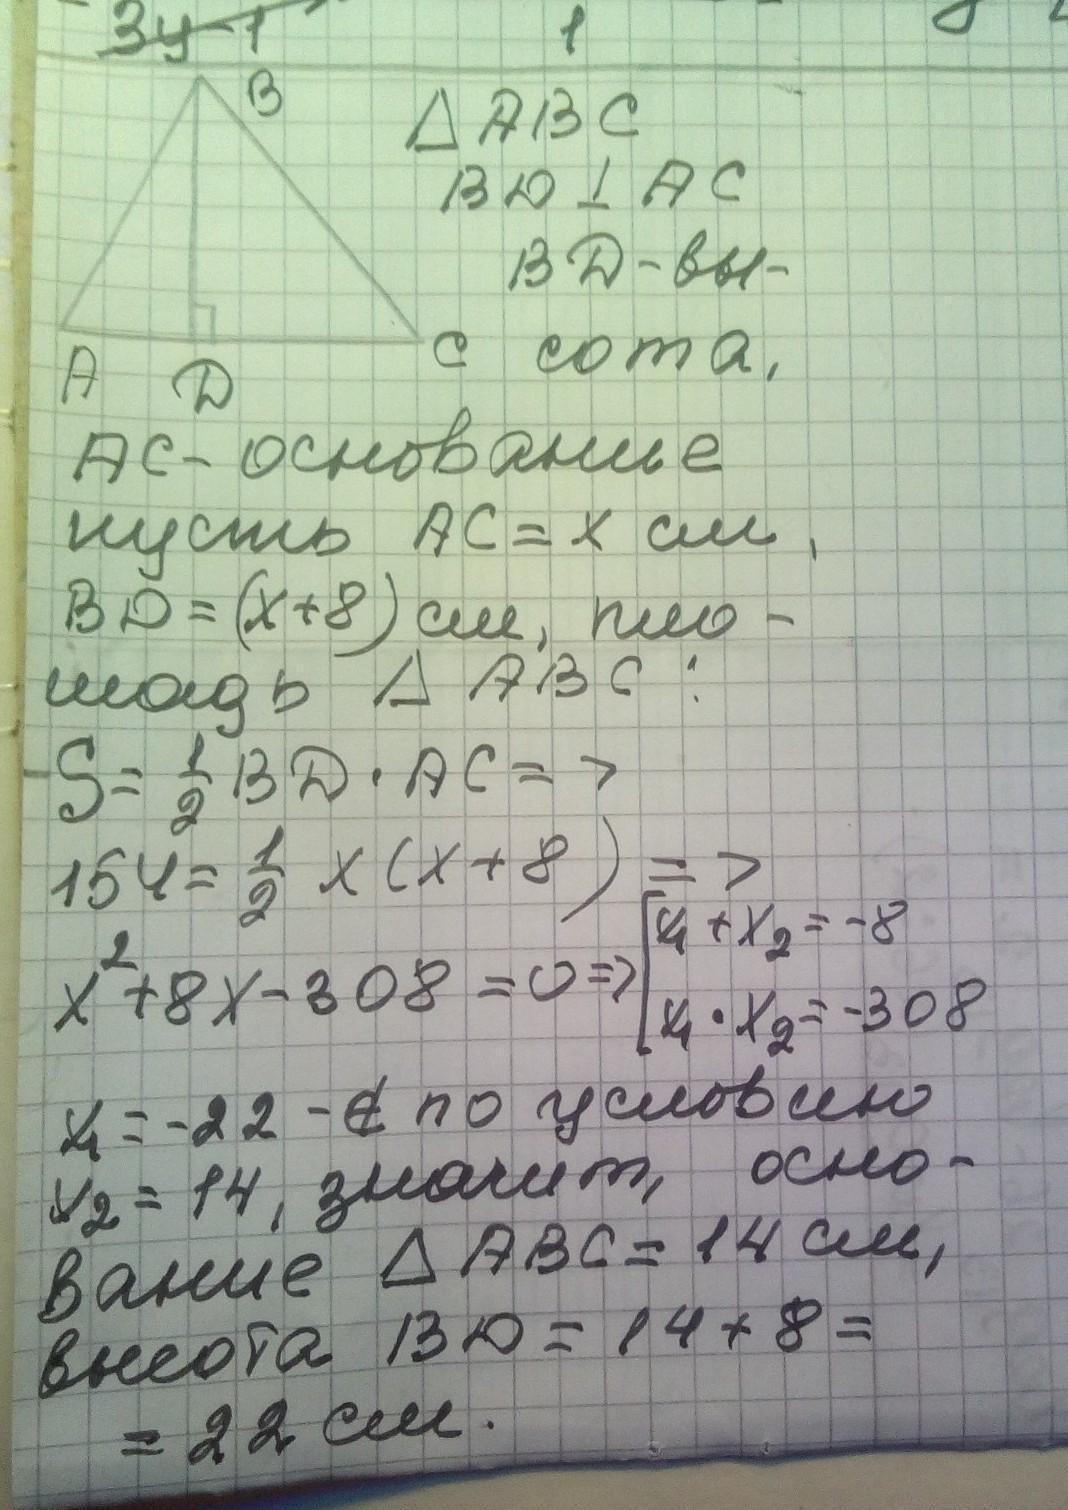 3y-1 1
B
△ ABC
BD ⊥ AC
BD - вы-
A D C сота,
AC - основание
пусть AC = x см,
BD = (x+8) см, пло-
щадь △ ABC :
S = 1/2 BD · AC =>
154 = 1/2 x (x+8) =>
x² + 8x - 308 = 0 => [x₁ + x₂ = -8
x₁ · x₂ = -308
x₁ = -22 - ∉ по условию
x₂ = 14, значит, осно-
вание △ ABC = 14 см,
высота BD = 14 + 8 =
= 22 см.